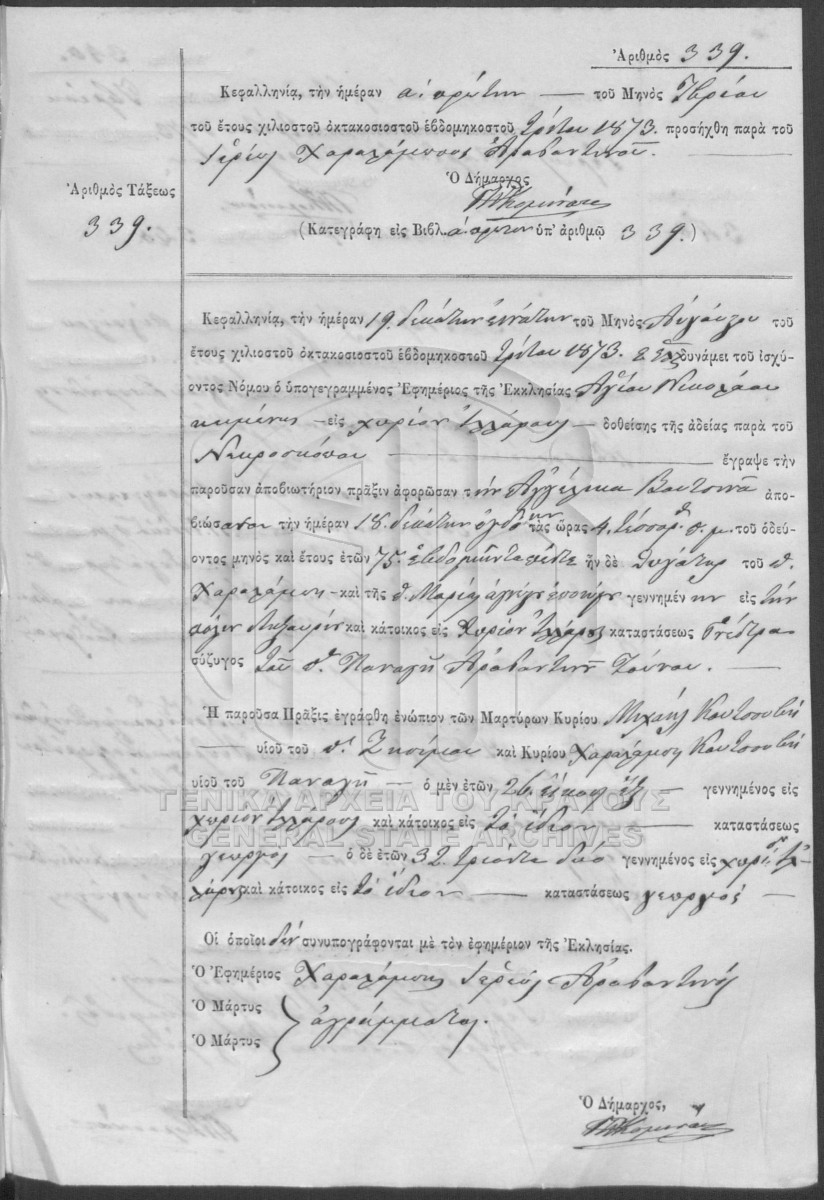 Ἀριθμὸς 339.
Κεφαλληνίᾳ, τὴν ἡμέραν α: πρώτην — τοῦ Μηνὸς 7βρίου
τοῦ ἔτους χιλιοστοῦ ὀκτακοσιοστοῦ ἑβδομηκοστοῦ τρίτου 1873. προσήχθη παρὰ τοῦ
Ἱερέως Χαραλάμπους Ἀραβαντινοῦ.
Ὁ Δήμαρχος
Ἀριθμὸς Τάξεως
339.
(Κατεγράφη εἰς Βιβλ. α: πρῶτον ὑπ' ἀριθμῷ 339.)
Κεφαλληνίᾳ, τὴν ἡμέραν 19 δεκάτην ἐννάτην τοῦ Μηνὸς Αὐγούστου τοῦ
ἔτους χιλιοστοῦ ὀκτακοσιοστοῦ ἑβδομηκοστοῦ τρίτου 1873. δυνάμει τοῦ ἰσχύ-
οντος Νόμου ὁ ὑπογεγραμμένος Ἐφημέριος τῆς Ἐκκλησίας Ἁγίου Νικολάου
κειμένης — εἰς χωρίον — δοθείσης τῆς ἀδείας παρὰ τοῦ
Νεκροσκόπου — ἔγραψε τὴν
παροῦσαν ἀποβιωτήριον πρᾶξιν ἀφορῶσαν τὴν Ἀγγέλικα ἀπο-
βιώσασαν τὴν ἡμέραν 18. δεκάτην ὀγδόην τὰς ὥρας 4. τέσσαρ. π. μ. τοῦ ὁδεύ-
οντος μηνὸς καὶ ἔτους ἐτῶν 75. ἑβδομήντα πέντε ἦν δὲ θυγάτηρ τοῦ π.
Χαραλάμπη — καὶ τῆς π. Μαρίας γεννημένην εἰς τὴν
πόλιν Ληξουρίου καὶ κάτοικος εἰς χωρίον καταστάσεως
σύζυγος τοῦ π. Παναγῆ Ἀραβαντινοῦ —
Ἡ παροῦσα Πρᾶξις ἐγράφθη ἐνώπιον τῶν Μαρτύρων Κυρίου Μιχαὴλ Κουτσουβῆ
— υἱοῦ τοῦ π. καὶ Κυρίου Χαραλάμπη Κουτσουβῆ
υἱοῦ τοῦ Παναγῆ — ὁ μὲν ἐτῶν 26. εἴκοσι ἕξ — γεννημένος εἰς
χωρίον καὶ κάτοικος εἰς τὸ ἴδιον — καταστάσεως
γεωργός — ὁ δὲ ἐτῶν 32 τριάντα δύο γεννημένος εἰς χωρίον
καὶ κάτοικος εἰς τὸ ἴδιον — καταστάσεως γεωργός —
Οἱ ὁποῖοι δὲν συνυπογράφονται μὲ τὸν ἐφημέριον τῆς Ἐκλησίας.
Ὁ Ἐφημέριος Χαραλάμπης Ἱερεὺς Ἀραβαντινός
Ὁ Μάρτυς
ἀγράμματοι.
Ὁ Μάρτυς
Ὁ Δήμαρχος,
ΓΕΝΙΚΑ ΑΡΧΕΙΑ ΤΟΥ ΚΡΑΤΟΥΣ
GENERAL STATE ARCHIVES